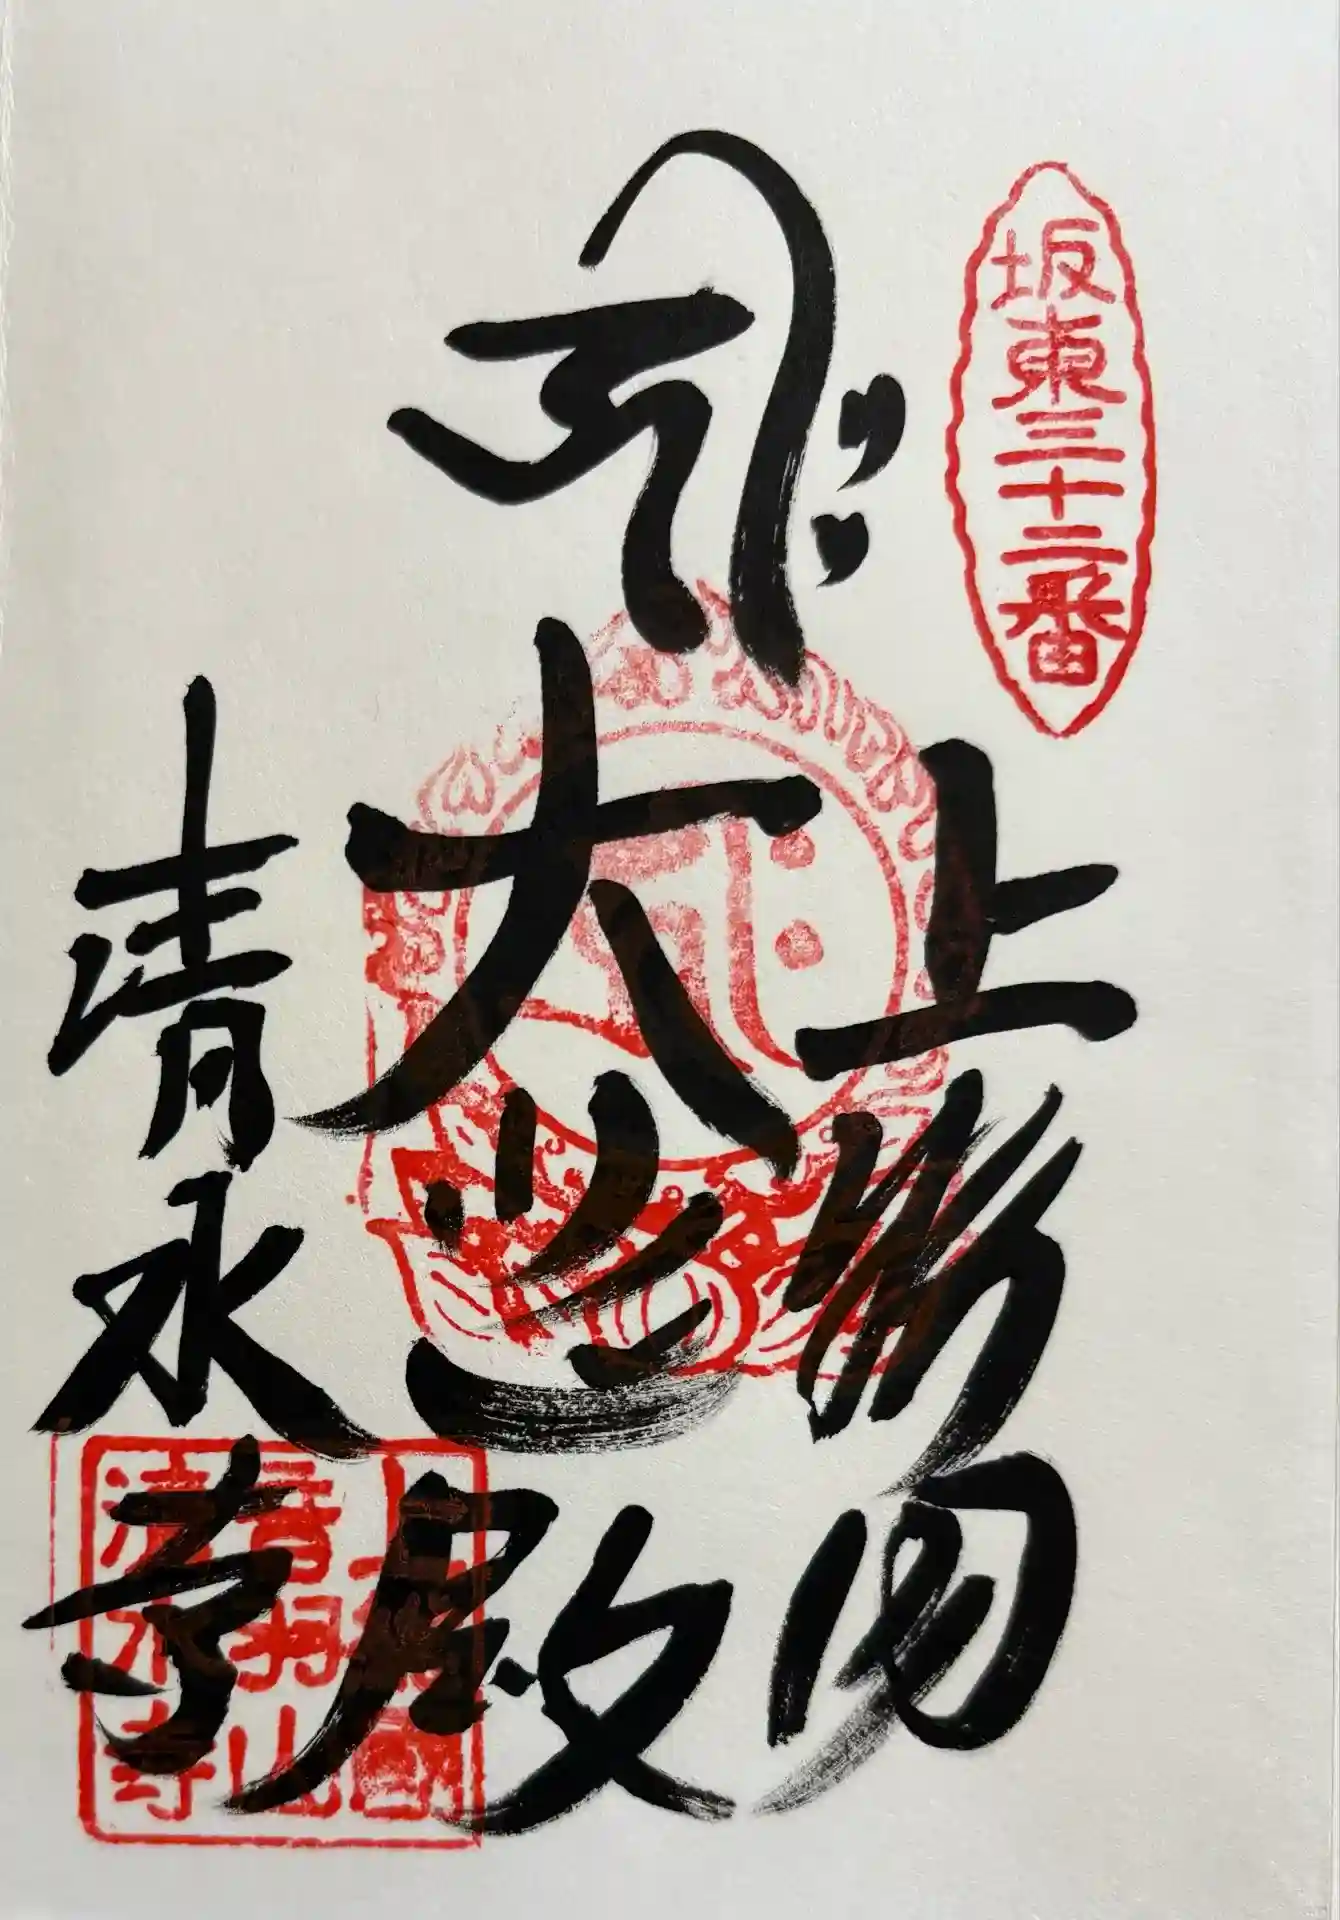 坂東三十二番
上総国
𑖭𑖾
大悲殿
清水寺
上総国
音羽山
清水寺